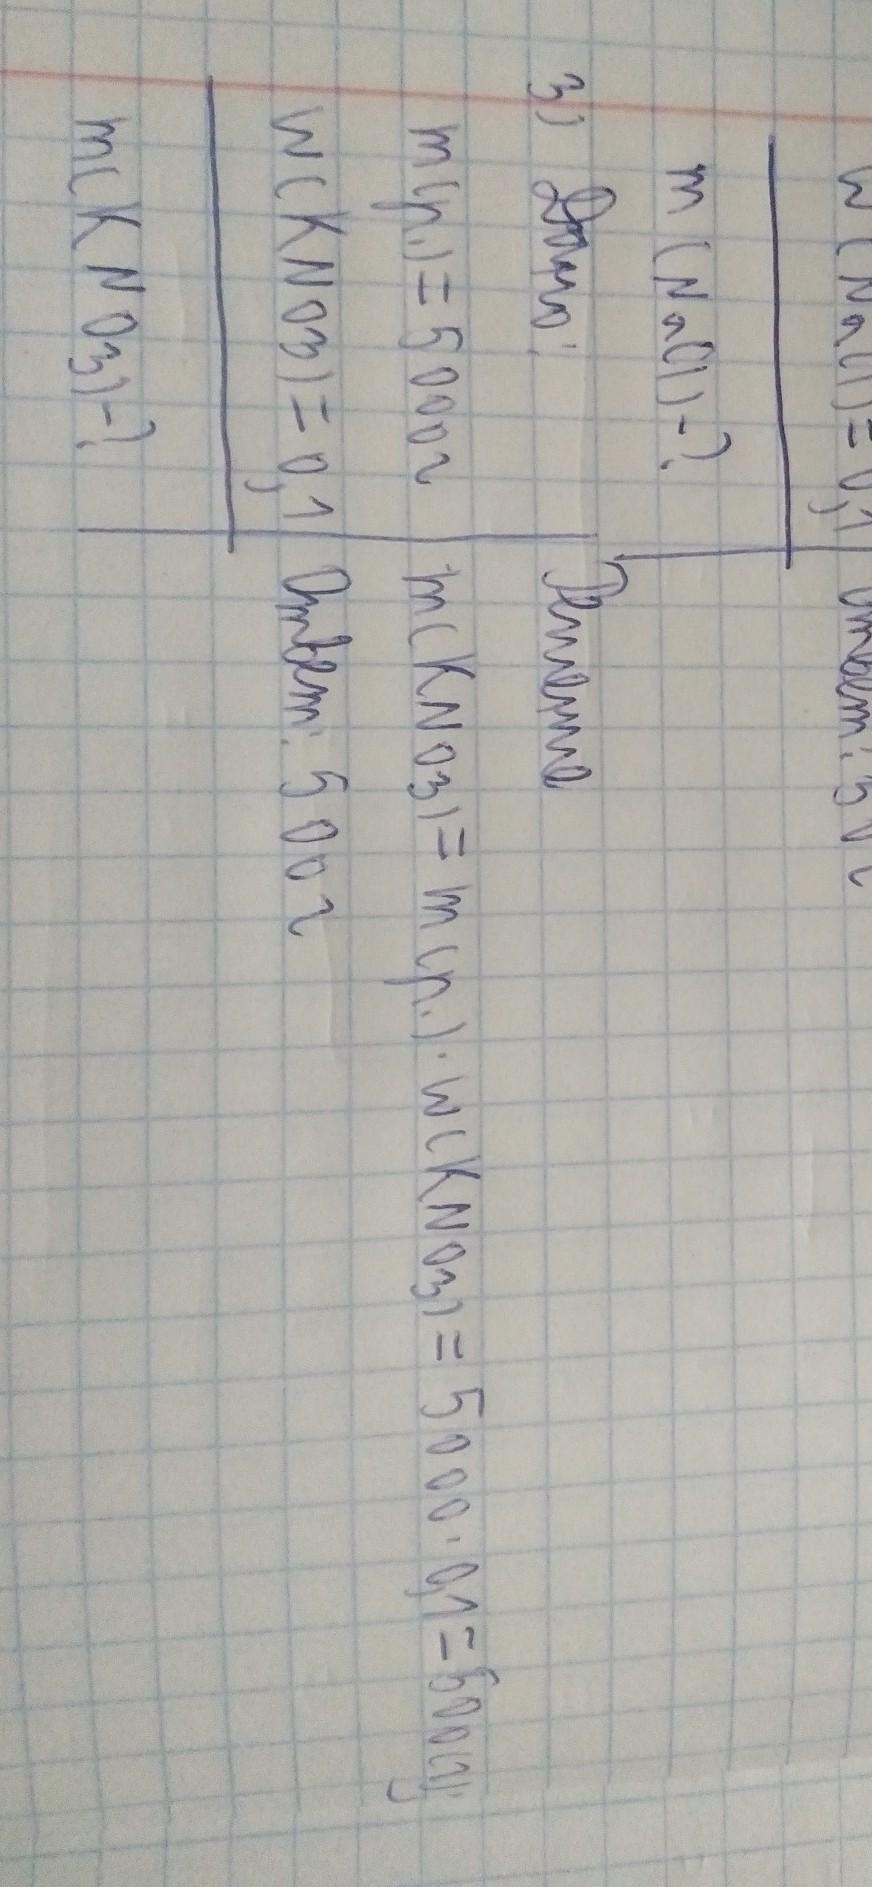 w(NaCl)=0,1
Ответ: 50 г
m(NaCl)-?
3) Дано:
Решение
m(р.)=5000г
m(KNO3)=m(р.)·w(KNO3)=5000·0,1=500(г);
w(KNO3)=0,1
Ответ: 500г
m(KNO3)-?